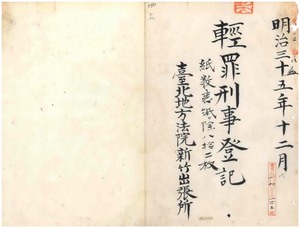 明治三十五年十二月
輕罪刑事登記
紙数表紙除八拾二枚
臺北地方法院新竹出張所